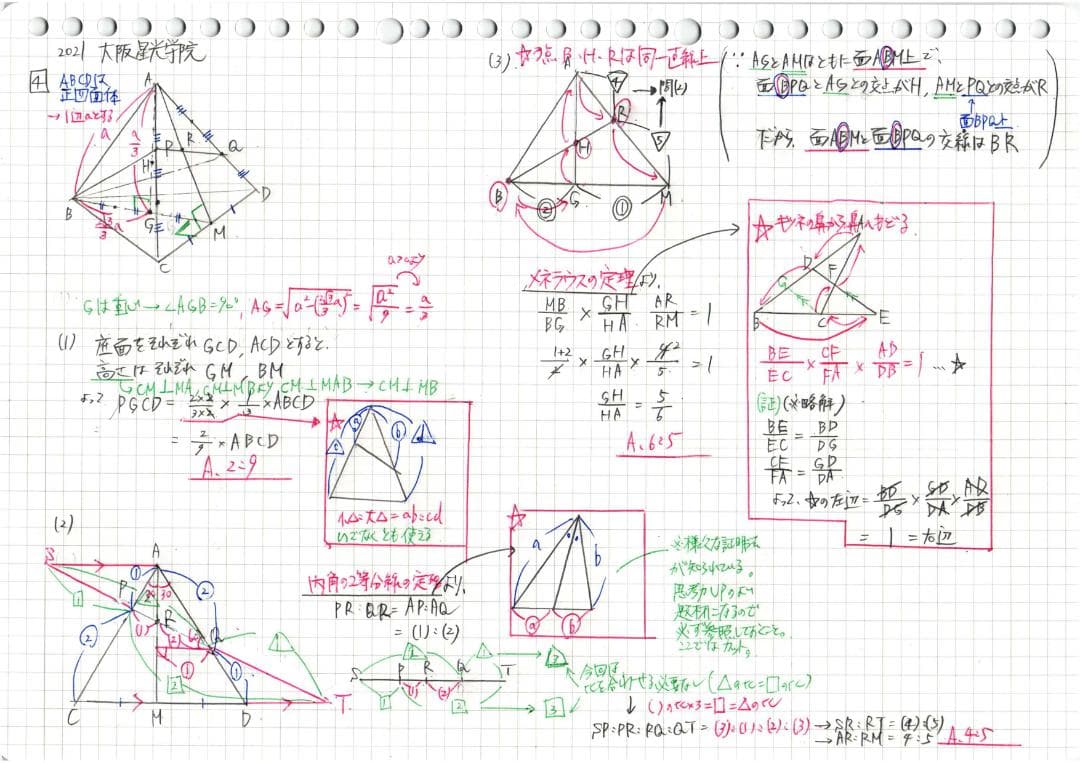 2021 大阪星光学院
4
ABCDは
正四面体
→1辺aとする
A
a
a/3
P
R
Q
H
B
D
G
M
√3/3 a
C
Gは重心→∠AGB=90°, AG=√(a²-(
a>0より
= a/3
(1) 底面をそれぞれGCD, ACDとすると、
高さはそれぞれ GM, BM
CM⊥MA, CM⊥MBより CM⊥MAB → CM⊥MB
よって PGCD=
×ABCD
= 2/9 × ABCD
A. 2:9
☆
小△:大△=ab:cd
いつでなくとも使える
(2)
S
A
P
R
Q
C
M
D
T
内角の2等分線の定理より、
PR:QR=AP:AQ
=(1):(2)
☆
a
b
ⓐ
ⓑ
※様々な証明法
が知られている。
思考力UPのよい
題材になるので
必ず参照しておくこと。
ここではカット。
S P R Q T
今回は
比を合わせる必要なし(△の比=□の比)
↓ ( )の比×3=□=△の比
SP:PR:RQ:QT=(3):(1):(2):(3) → SR:RT=(4):(5)
→ AR:RM=4:5 A. 4:5
(3) ☆3点B・H・Rは同一直線上
A
4
→問(2)
R
5
H
B
G
M
②
①
(∵ AGとAMはともに面ABM上で、
面BPQとAGとの交点がH, AMとPQとの交点がR
面BPQ上
だから、面ABMと面BPQの交線はBR)
メネラウスの定理より、
MB/BG × GH/HA × AR/RM = 1
1+2/2 × GH/HA × 4/5 = 1
GH/HA = 5/6
A. 6:5
☆キツネの鼻から鼻へもどる
A
D
F
G
B
C
E
BE/EC × CF/FA × AD/DB = 1 … ☆
(証)(※略解)
BE/EC = BD/DG
CF/FA = GD/DA
よって、☆の左辺= BD/DG × GD/DA × AD/DB
= 1 = 右辺